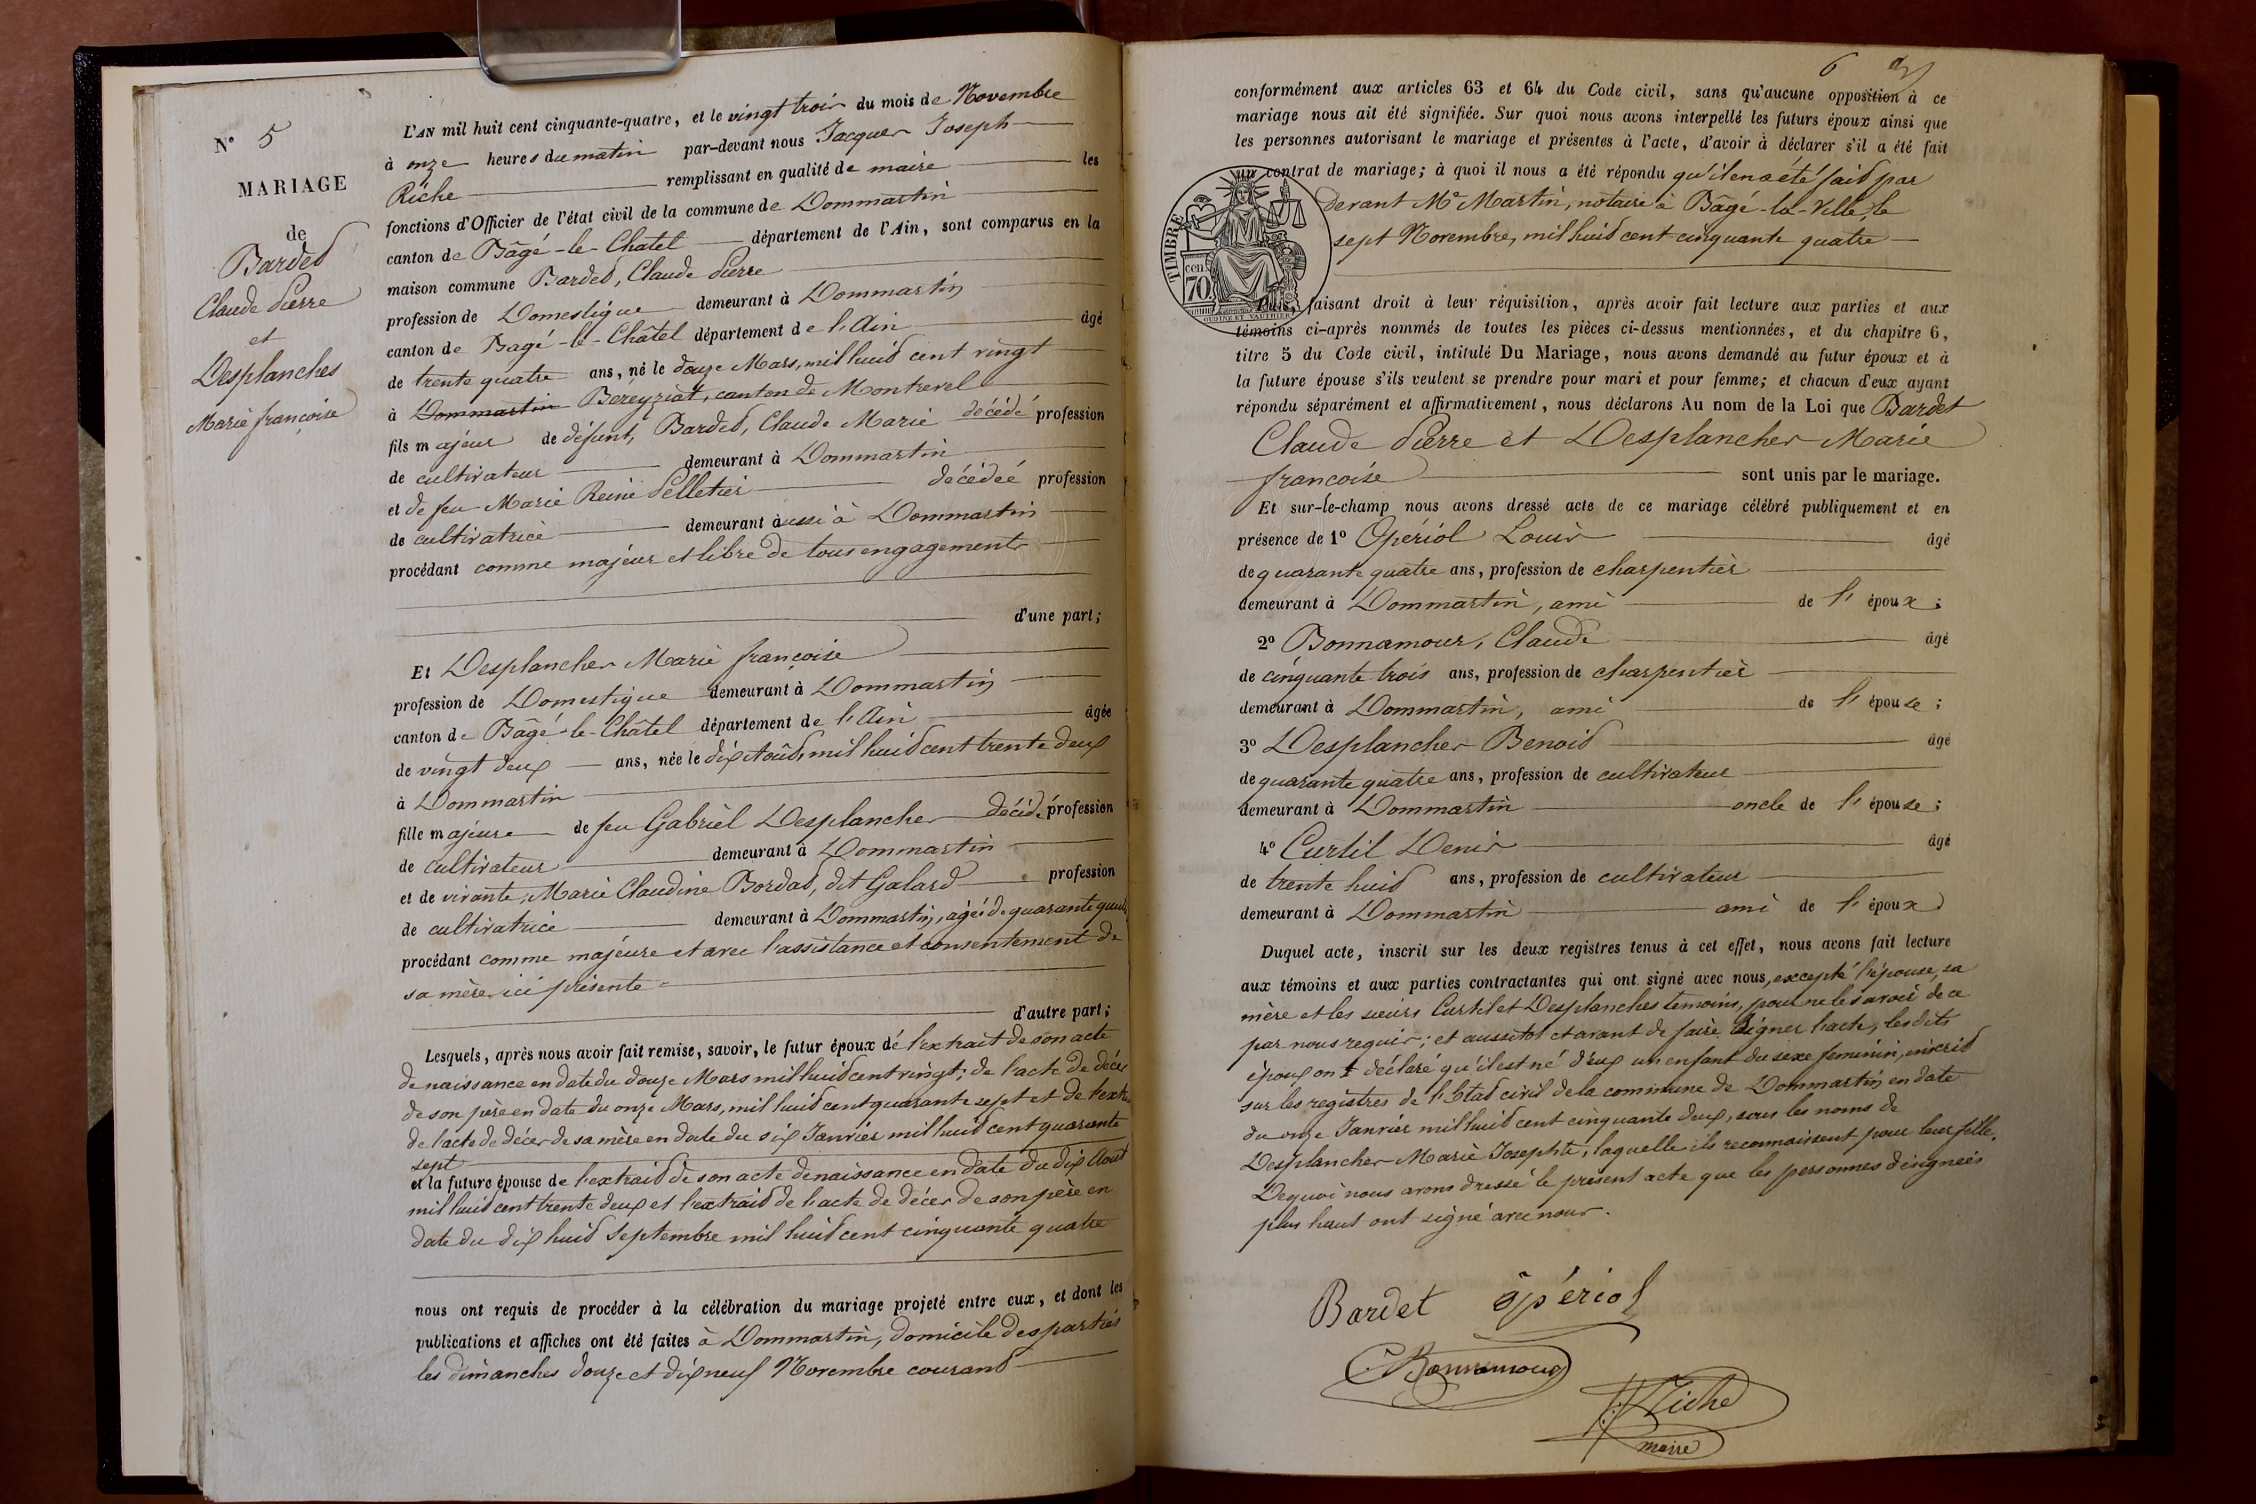 N° 5
MARIAGE
de
Bardet
Claude Pierre
et
Desplanches
Marie françoise
L'AN mil huit cent cinquante-quatre, et le vingt trois du mois de Novembre
à onze heures du matin par-devant nous Jacques Joseph
Riche remplissant en qualité de maire les
fonctions d'Officier de l'état civil de la commune de Dommartin
canton de Bâgé-le-Chatel département de l'Ain, sont comparus en la
maison commune Bardet, Claude Pierre
profession de Domestique demeurant à Dommartin
canton de Bagé-le-Châtel département de l'Ain âgé
de trente quatre ans, né le douze Mars, mil huit cent vingt
à Dommartin Béreyziat, canton de Montrevel
fils majeur de défunt, Bardet, Claude Marie décédé profession
de cultivateur demeurant à Dommartin
et de feu Marie Reine Pelletier décédée profession
de cultivatrice demeurant aussi à Dommartin
procédant comme majeur et libre de tous engagements
d'une part;
Et Desplanches Marie françoise
profession de Domestique demeurant à Dommartin
canton de Bâgé-le-Châtel département de l'Ain âgée
de vingt deux ans, née le dix Aoûd, mil huit cent trente deux
à Dommartin
fille majeure de feu Gabriel Desplanches décédé profession
de cultivateur demeurant à Dommartin
et de vivante, Marie Claudine Bordat, dit Galard profession
de cultivatrice demeurant à Dommartin, agée de quarante
procédant comme majeure et avec l'assistance et consentement de
sa mère ici présente
d'autre part;
Lesquels, après nous avoir fait remise, savoir, le futur époux de l'extrait de son acte
de naissance en date du douze Mars mil huit cent vingt; de l'acte de décès
de son père en date du onze Mars, mil huit cent quarante sept et de l'extr
de l'acte de décès de sa mère en date du six Janvier mil huit cent quarante
sept
et la future épouse de l'extrait de son acte de naissance en date du dix Aout
mil huit cent trente deux et l'extrait de l'acte de décès de son père en
date du dix huit Septembre mil huit cent cinquante quatre
nous ont requis de procéder à la célébration du mariage projeté entre eux, et dont les
publications et affiches ont été faites à Dommartin, domicile des parties
les dimanches douze et dix neuf Novembre courant
6
conformément aux articles 63 et 64 du Code civil, sans qu'aucune opposition à ce
mariage nous ait été signifiée. Sur quoi nous avons interpellé les futurs époux ainsi que
les personnes autorisant le mariage et présentes à l'acte, d'avoir à déclarer s'il a été fait
un contrat de mariage; à quoi il nous a été répondu qu'il en a été fait par
devant Me Martin, notaire à Bâgé-la-Ville, le
sept Novembre, mil huit cent cinquante quatre
TIMBRE
cen.
70
OUDINE ET VAUTHIER
Puis, faisant droit à leur réquisition, après avoir fait lecture aux parties et aux
témoins ci-après nommés de toutes les pièces ci-dessus mentionnées, et du chapitre 6,
titre 5 du Code civil, intitulé Du Mariage, nous avons demandé au futur époux et à
la future épouse s'ils veulent se prendre pour mari et pour femme; et chacun d'eux ayant
répondu séparément et affirmativement, nous déclarons Au nom de la Loi que Bardet
Claude Pierre et Desplanches Marie
francoise sont unis par le mariage.
Et sur-le-champ nous avons dressé acte de ce mariage célébré publiquement et en
présence de 1° Opériol Louis âgé
de quarante quatre ans, profession de charpentier
demeurant à Dommartin, ami de l'époux;
2° Bonnamour, Claude âgé
de cinquante trois ans, profession de charpentier
demeurant à Dommartin, ami de l'épouse;
3° Desplanches Benoid âgé
de quarante quatre ans, profession de cultivateur
demeurant à Dommartin oncle de l'épouse;
4° Curtil Denis âgé
de trente huit ans, profession de cultivateur
demeurant à Dommartin ami de l'époux
Duquel acte, inscrit sur les deux registres tenus à cet effet, nous avons fait lecture
aux témoins et aux parties contractantes qui ont signé avec nous, excepté l'épouse, sa
mère et les sieurs Curtil et Desplanches temoins, pour ne le savoir de ce
par nous requis; et aussitot et avant de faire signer l'acte, lesdits
époux ont déclaré qu'il est né d'eux un enfant du sexe feminin, inscrid
sur les registres de l'Etat civil de la commune de Dommartin en date
du onze Janvier mil huit cent cinquante deux, sous les noms de
Desplanches Marie Josephte, laquelle ils reconnaissent pour leur fille.
De quoi nous avons dressé le présent acte que les personnes désignées
plus haut ont signé avec nous.
Bardet Opériol
C Bonnamour
JJ Riche
maire